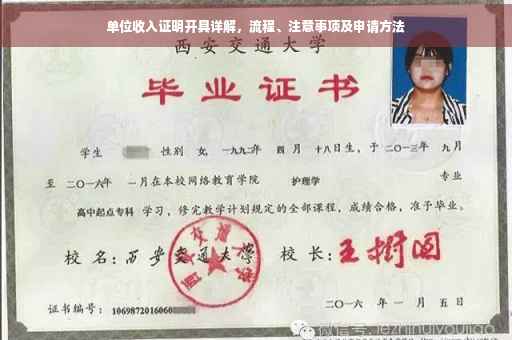 单位收入证明开具详解，流程、注意事项及申请方法
西安交通大学
毕业证书
学生 性别 女, 一九九二年 四月 十八日生, 于二〇一三年 九月
至 二〇一六年 一月在本校网络教育学院 护理学 专业
高中起点专科 学习, 修完教学计划规定的全部课程, 成绩合格, 准予毕业。
校 名: 西安交通大学 校 长: 王树国
西安交通大学
证书编号: 1069872016060
二〇一六 年 一 月 五 日
微信号: jezhinuiyoujiao